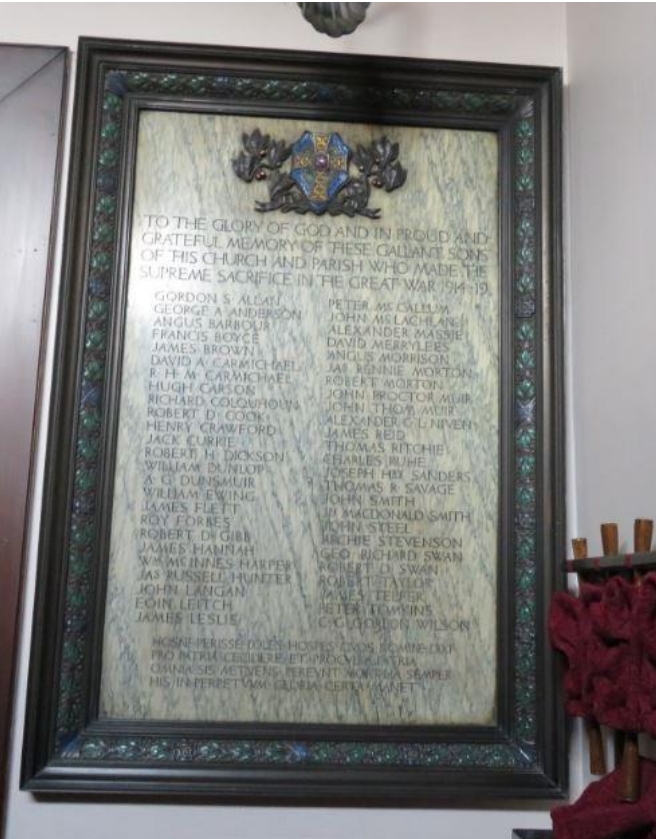 TO THE GLORY OF GOD AND IN PROUD AND
GRATEFUL MEMORY OF THESE GALLANT SONS
OF THIS CHURCH AND PARISH WHO MADE THE
SUPREME SACRIFICE IN THE GREAT WAR 1914-19
GORDON S. ALLAN
GEORGE A. ANDERSON
ANGUS BARBOUR
FRANCIS BOYCE
JAMES BROWN
DAVID A. CARMICHAEL
R. H. M. CARMICHAEL
HUGH CARSON
RICHARD COLQUHOUN
ROBERT D. COOK
HENRY CRAWFORD
JACK CURRIE
ROBERT H. DICKSON
WILLIAM DUNLOP
A. G. DUNSMUIR
WILLIAM EWING
JAMES FLETT
ROY FORBES
ROBERT D. GIBB
JAMES HANNAH
WM MCINNES HARPER
JAS RUSSELL HUNTER
JOHN LANGAN
EOIN LEITCH
JAMES LESLIE
PETER MCCALLUM
JOHN MCLACHLAN
ALEXANDER MASSIE
DAVID MERRYLEES
ANGUS MORRISON
JAS RENNIE MORTON
ROBERT MORTON
JOHN PROCTOR MUIR
JOHN THOM MUIR
ALEXANDER G. L. NIVEN
JAMES REID
THOMAS RITCHIE
CHARLES RUHE
JOSEPH HAY SANDERS
THOMAS R. SAVAGE
JOHN SMITH
JN MACDONALD SMITH
JOHN STEEL
ARCHIE STEVENSON
GEO. RICHARD SWAN
ROBERT D. SWAN
ROBERT TAYLOR
JAMES TELFER
PETER TOMKINS
C. G. GORDON WILSON
HOSNE PERISSE DOLES HOSPES QVOS NOMINE
PRO PATRIA CECIDERE ET PROCVL A PATRIA
OMNIA SIS METVENS PEREVNT MORTALIA SEMPER
HIS IN PERPETVVM GLORIA CERTA MANET